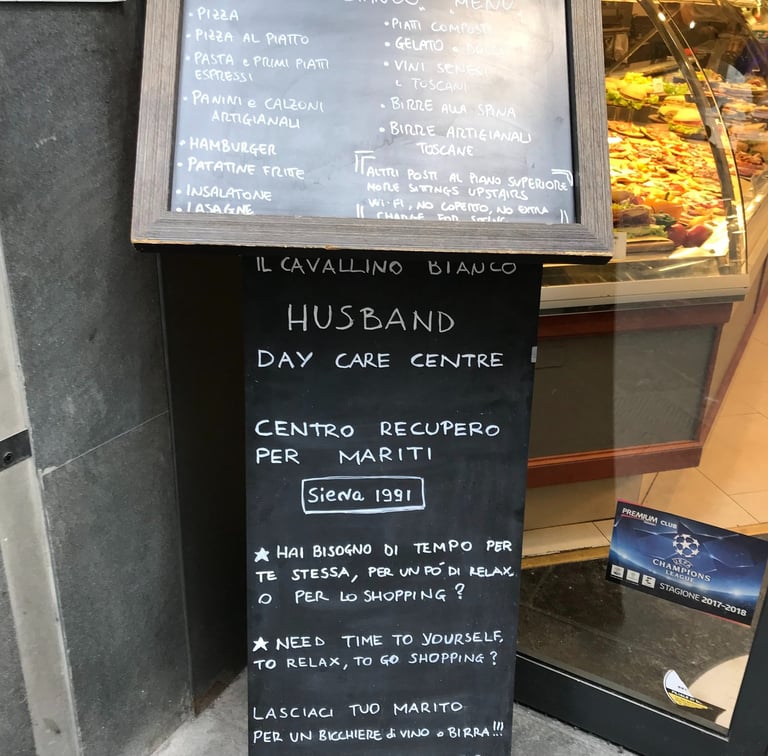 BIANCO MENU
• PIZZA
• PIZZA AL PIATTO
• PASTA e PRIMI PIATTI
ESPRESSI
• PANINI e CALZONI
ARTIGIANALI
• HAMBURGER
• PATATINE FRITTE
• INSALATONE
• LASAGNE
• PIATTI COMPOSTI
• GELATO e
• VINI SENESI
e TOSCANI
• BIRRE ALLA SPINA
• BIRRE ARTIGIANALI
TOSCANE
ALTRI POSTI AL PIANO SUPERIORE
MORE SITTINGS UPSTAIRS
WI-FI, NO COPERTO, NO EXTRA
CHARGE FOR
IL CAVALLINO BIANCO
HUSBAND
DAY CARE CENTRE
CENTRO RECUPERO
PER MARITI
Siena 1991
★ HAI BISOGNO DI TEMPO PER
TE STESSA, PER UN PO' DI RELAX
O PER LO SHOPPING?
★ NEED TIME TO YOURSELF,
TO RELAX, TO GO SHOPPING?
LASCIACI TUO MARITO
PER UN BICCHIERE di VINO o BIRRA!!!
PREMIUM CLUB
UEFA
CHAMPIONS
LEAGUE
STAGIONE 2017-2018